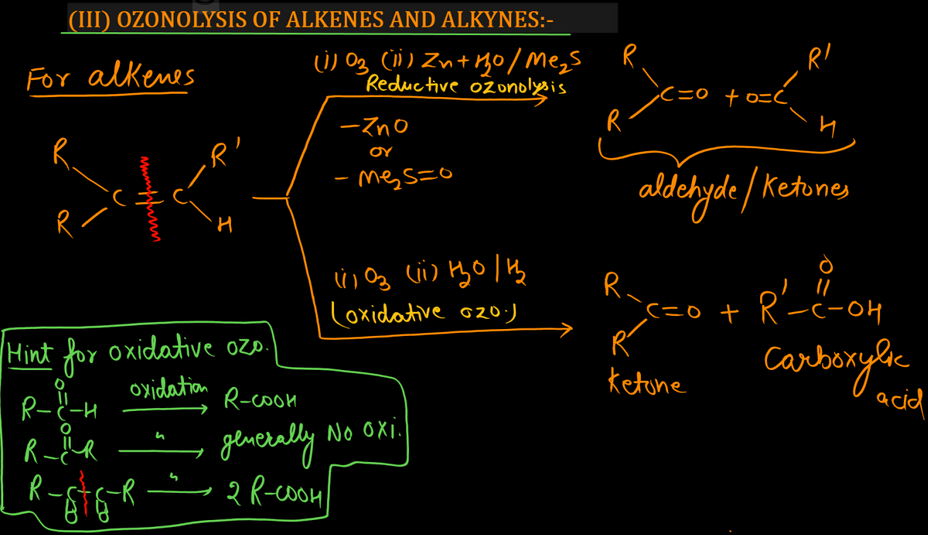 (III) OZONOLYSIS OF ALKENES AND ALKYNES:-
For alkenes
(i) O3 (ii) Zn + H2O / Me2S
Reductive ozonolysis
- ZnO
or
- Me2S=O
R R
C = C
R' H
R R
C=O + O=C
R' H
aldehyde / Ketones
(i) O3 (ii) H2O | H2
(oxidative ozo.)
R R
C=O + R'-C-OH
O
Ketone
Carboxylic
acid
Hint for oxidative ozo.
O
R-C-H oxidation R-COOH
O
R-C-R " generally No oxi.
R-C-C-R " 2 R-COOH
O O